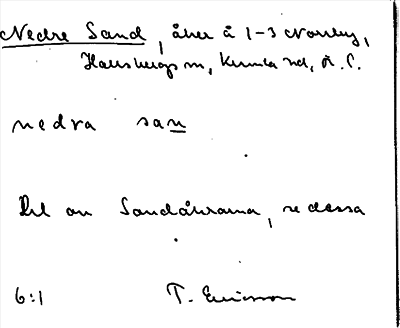 Nedre Sand, åker å 1-3 Norrby,
Hallsbergs sn, Kumla hd, Ö. l.
nedra san
Del av Sandåkrarna, se dessa
6:1 T. Ericsson